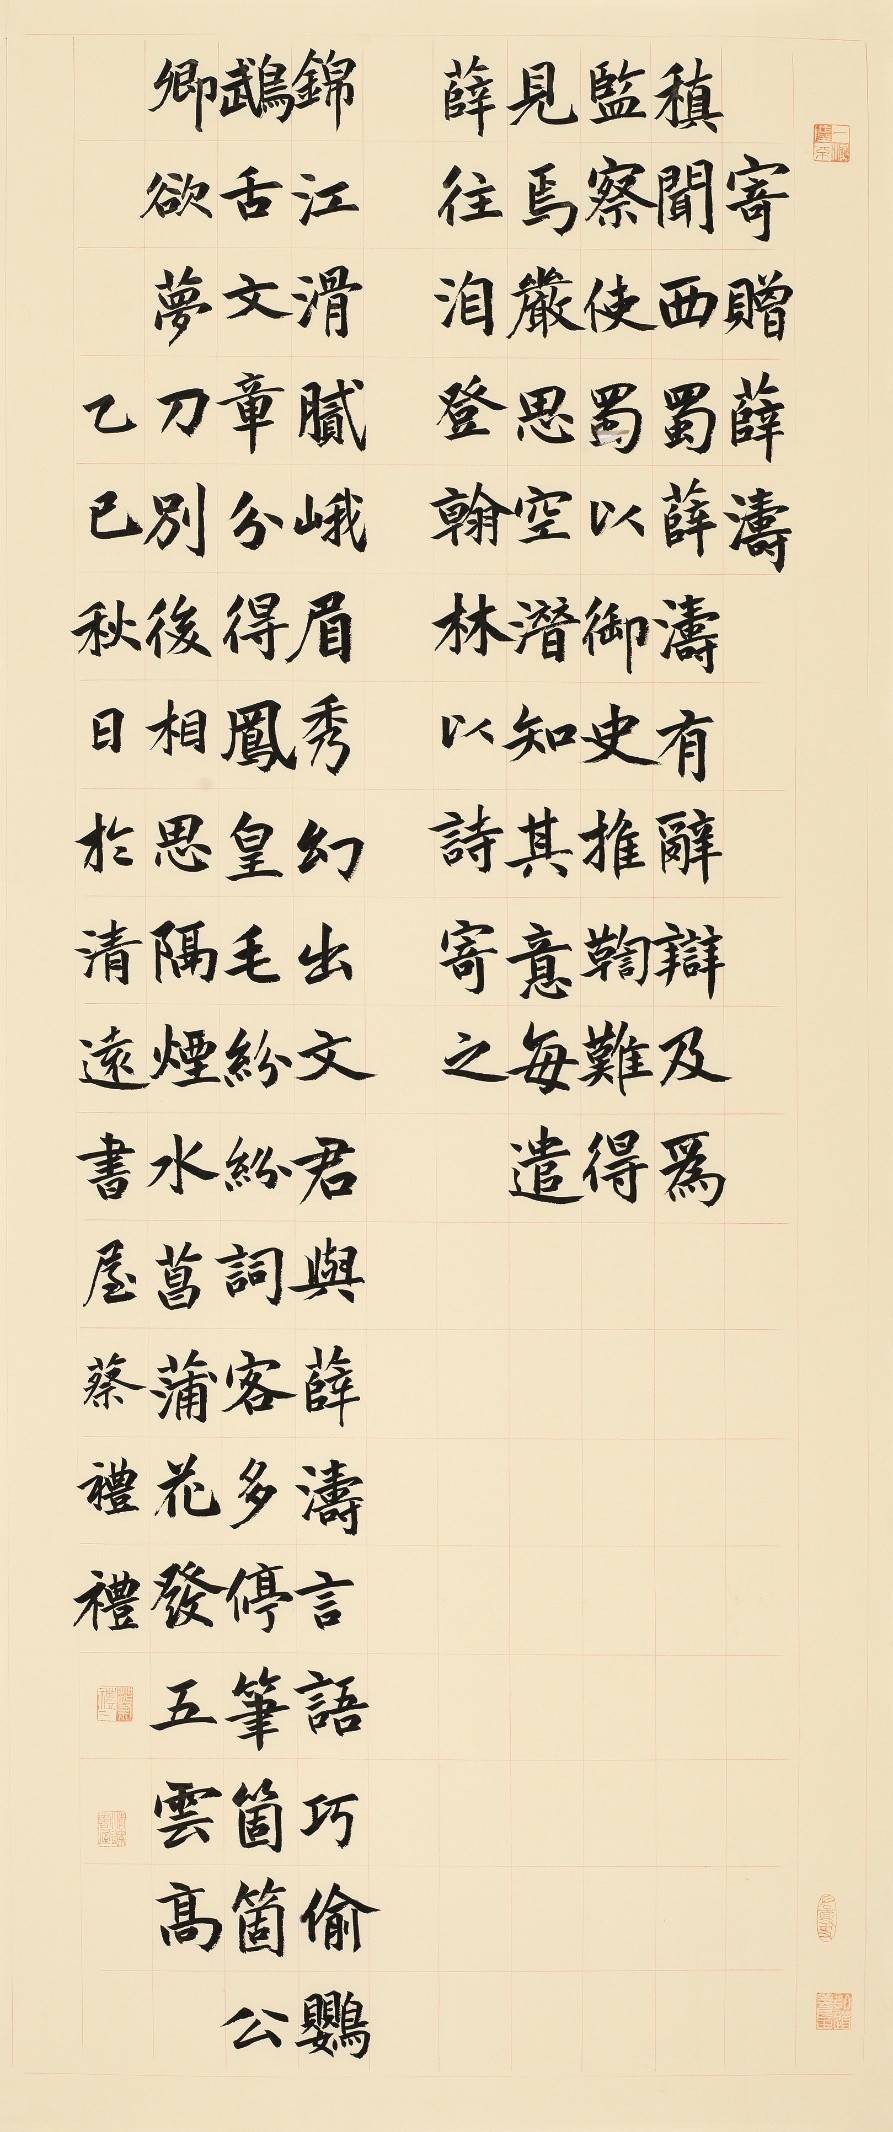 寄贈薛濤
稹聞西蜀薛濤有辭辯及爲
監察使蜀以御史推鞫難得
見焉嚴思空潛知其意每遣
薛往洎登翰林以詩寄之
錦江滑膩峨眉秀幻出文君與薛濤言語巧偷鸚
鵡舌文章分得鳳皇毛紛紛詞客多停筆箇箇公
卿欲夢刀別後相思隔煙水菖蒲花發五雲高
乙巳秋日於清遠書屋蔡禮禮